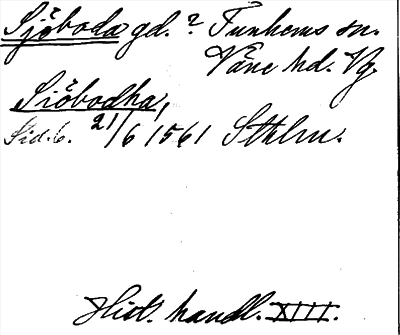 Sjöboda gd. ? Tunhems sn.
Väne hd. Vg.
Siöbodha,
Sid. 6. 21/6 1561 Sthlm.
Hist. handl. XIII.